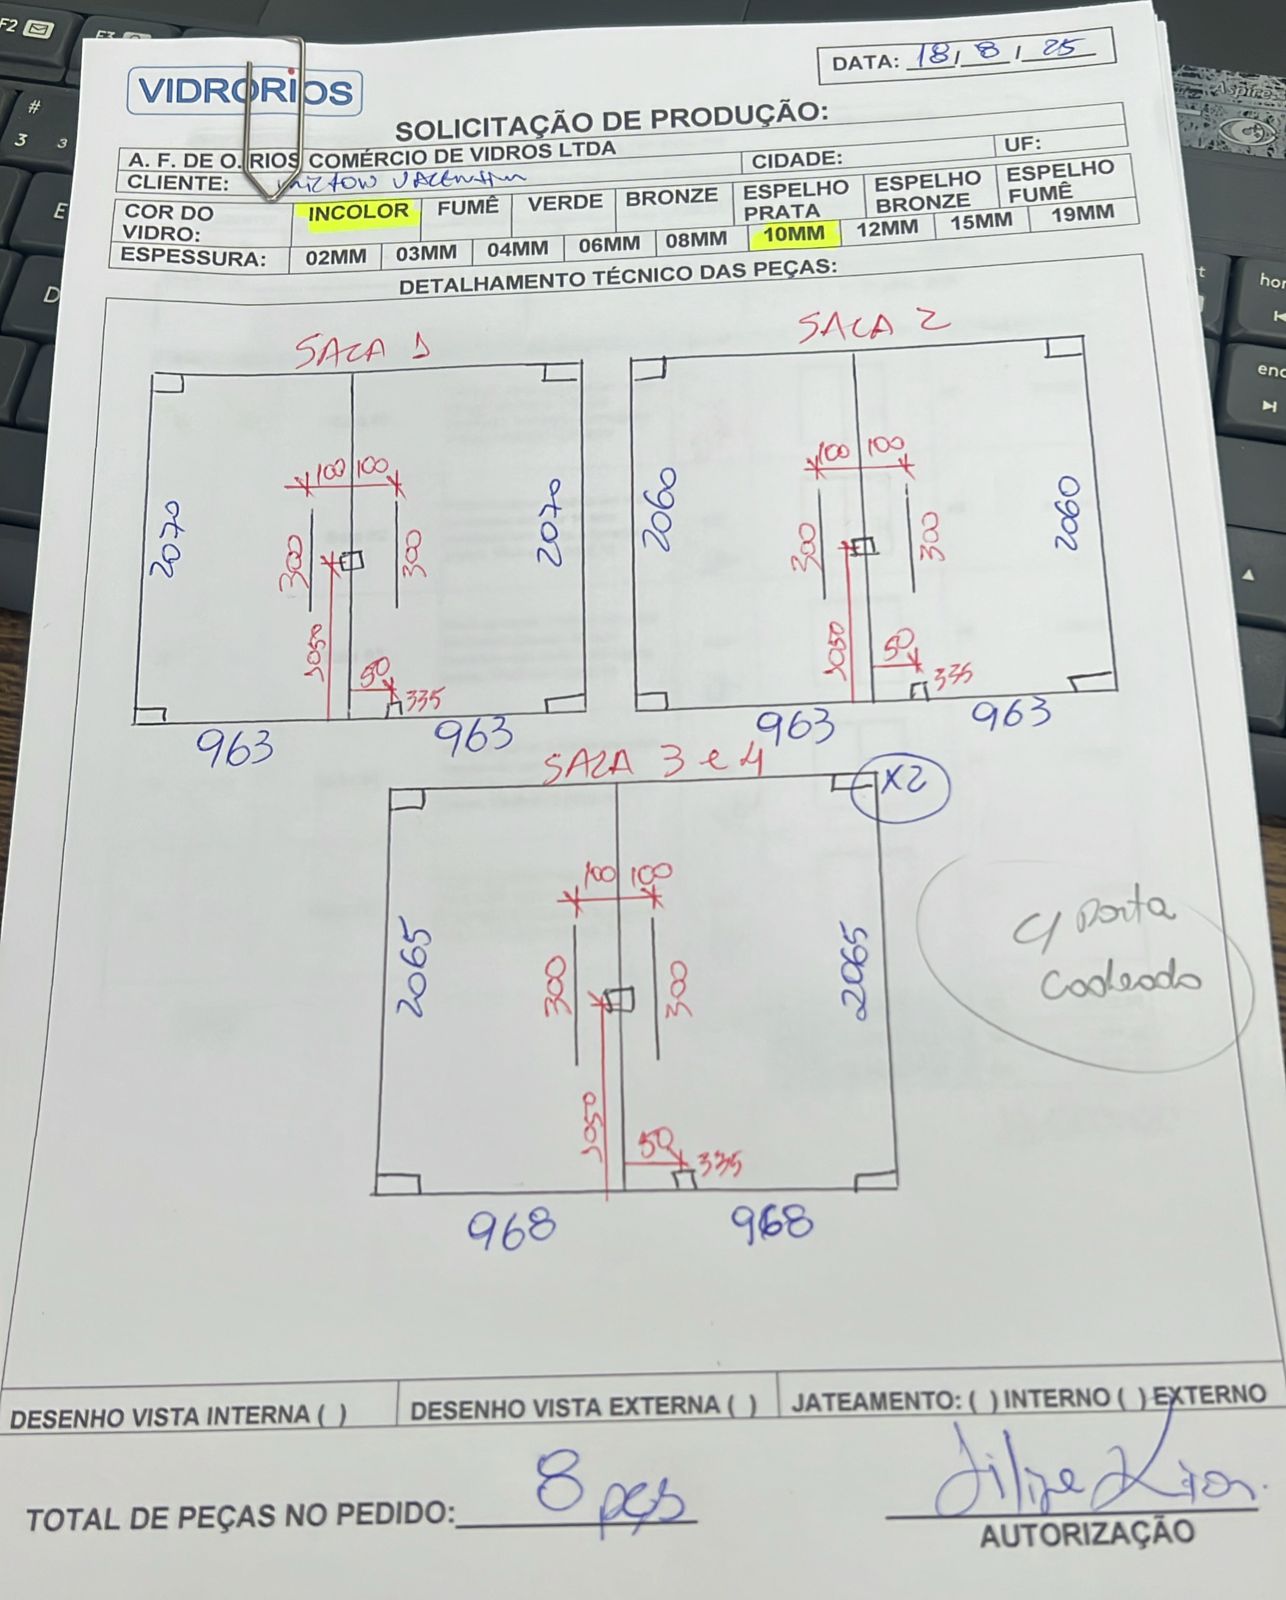 VIDRORIOS
DATA: 18/8/25
SOLICITAÇÃO DE PRODUÇÃO:
A. F. DE O. RIOS COMÉRCIO DE VIDROS LTDA CIDADE: UF:
CLIENTE:
COR DO VIDRO: INCOLOR FUMÊ VERDE BRONZE ESPELHO PRATA ESPELHO BRONZE ESPELHO FUMÊ
ESPESSURA: 02MM 03MM 04MM 06MM 08MM 10MM 12MM 15MM 19MM
DETALHAMENTO TÉCNICO DAS PEÇAS:
SALA 1
100 100
2070 300 300 2070
1050
50
335
963 963
SALA 2
100 100
2060 300 300 2060
1050
50
335
963 963
SALA 3 e 4
X2
100 100
2065 300 300 2065
1050
50
335
968 968
C/ Porta
Cadeado
DESENHO VISTA INTERNA ( ) DESENHO VISTA EXTERNA ( ) JATEAMENTO: ( ) INTERNO ( ) EXTERNO
TOTAL DE PEÇAS NO PEDIDO: 8 pçs
AUTORIZAÇÃO
F2
F3
#
3 3
E
D
Aspire
home
end